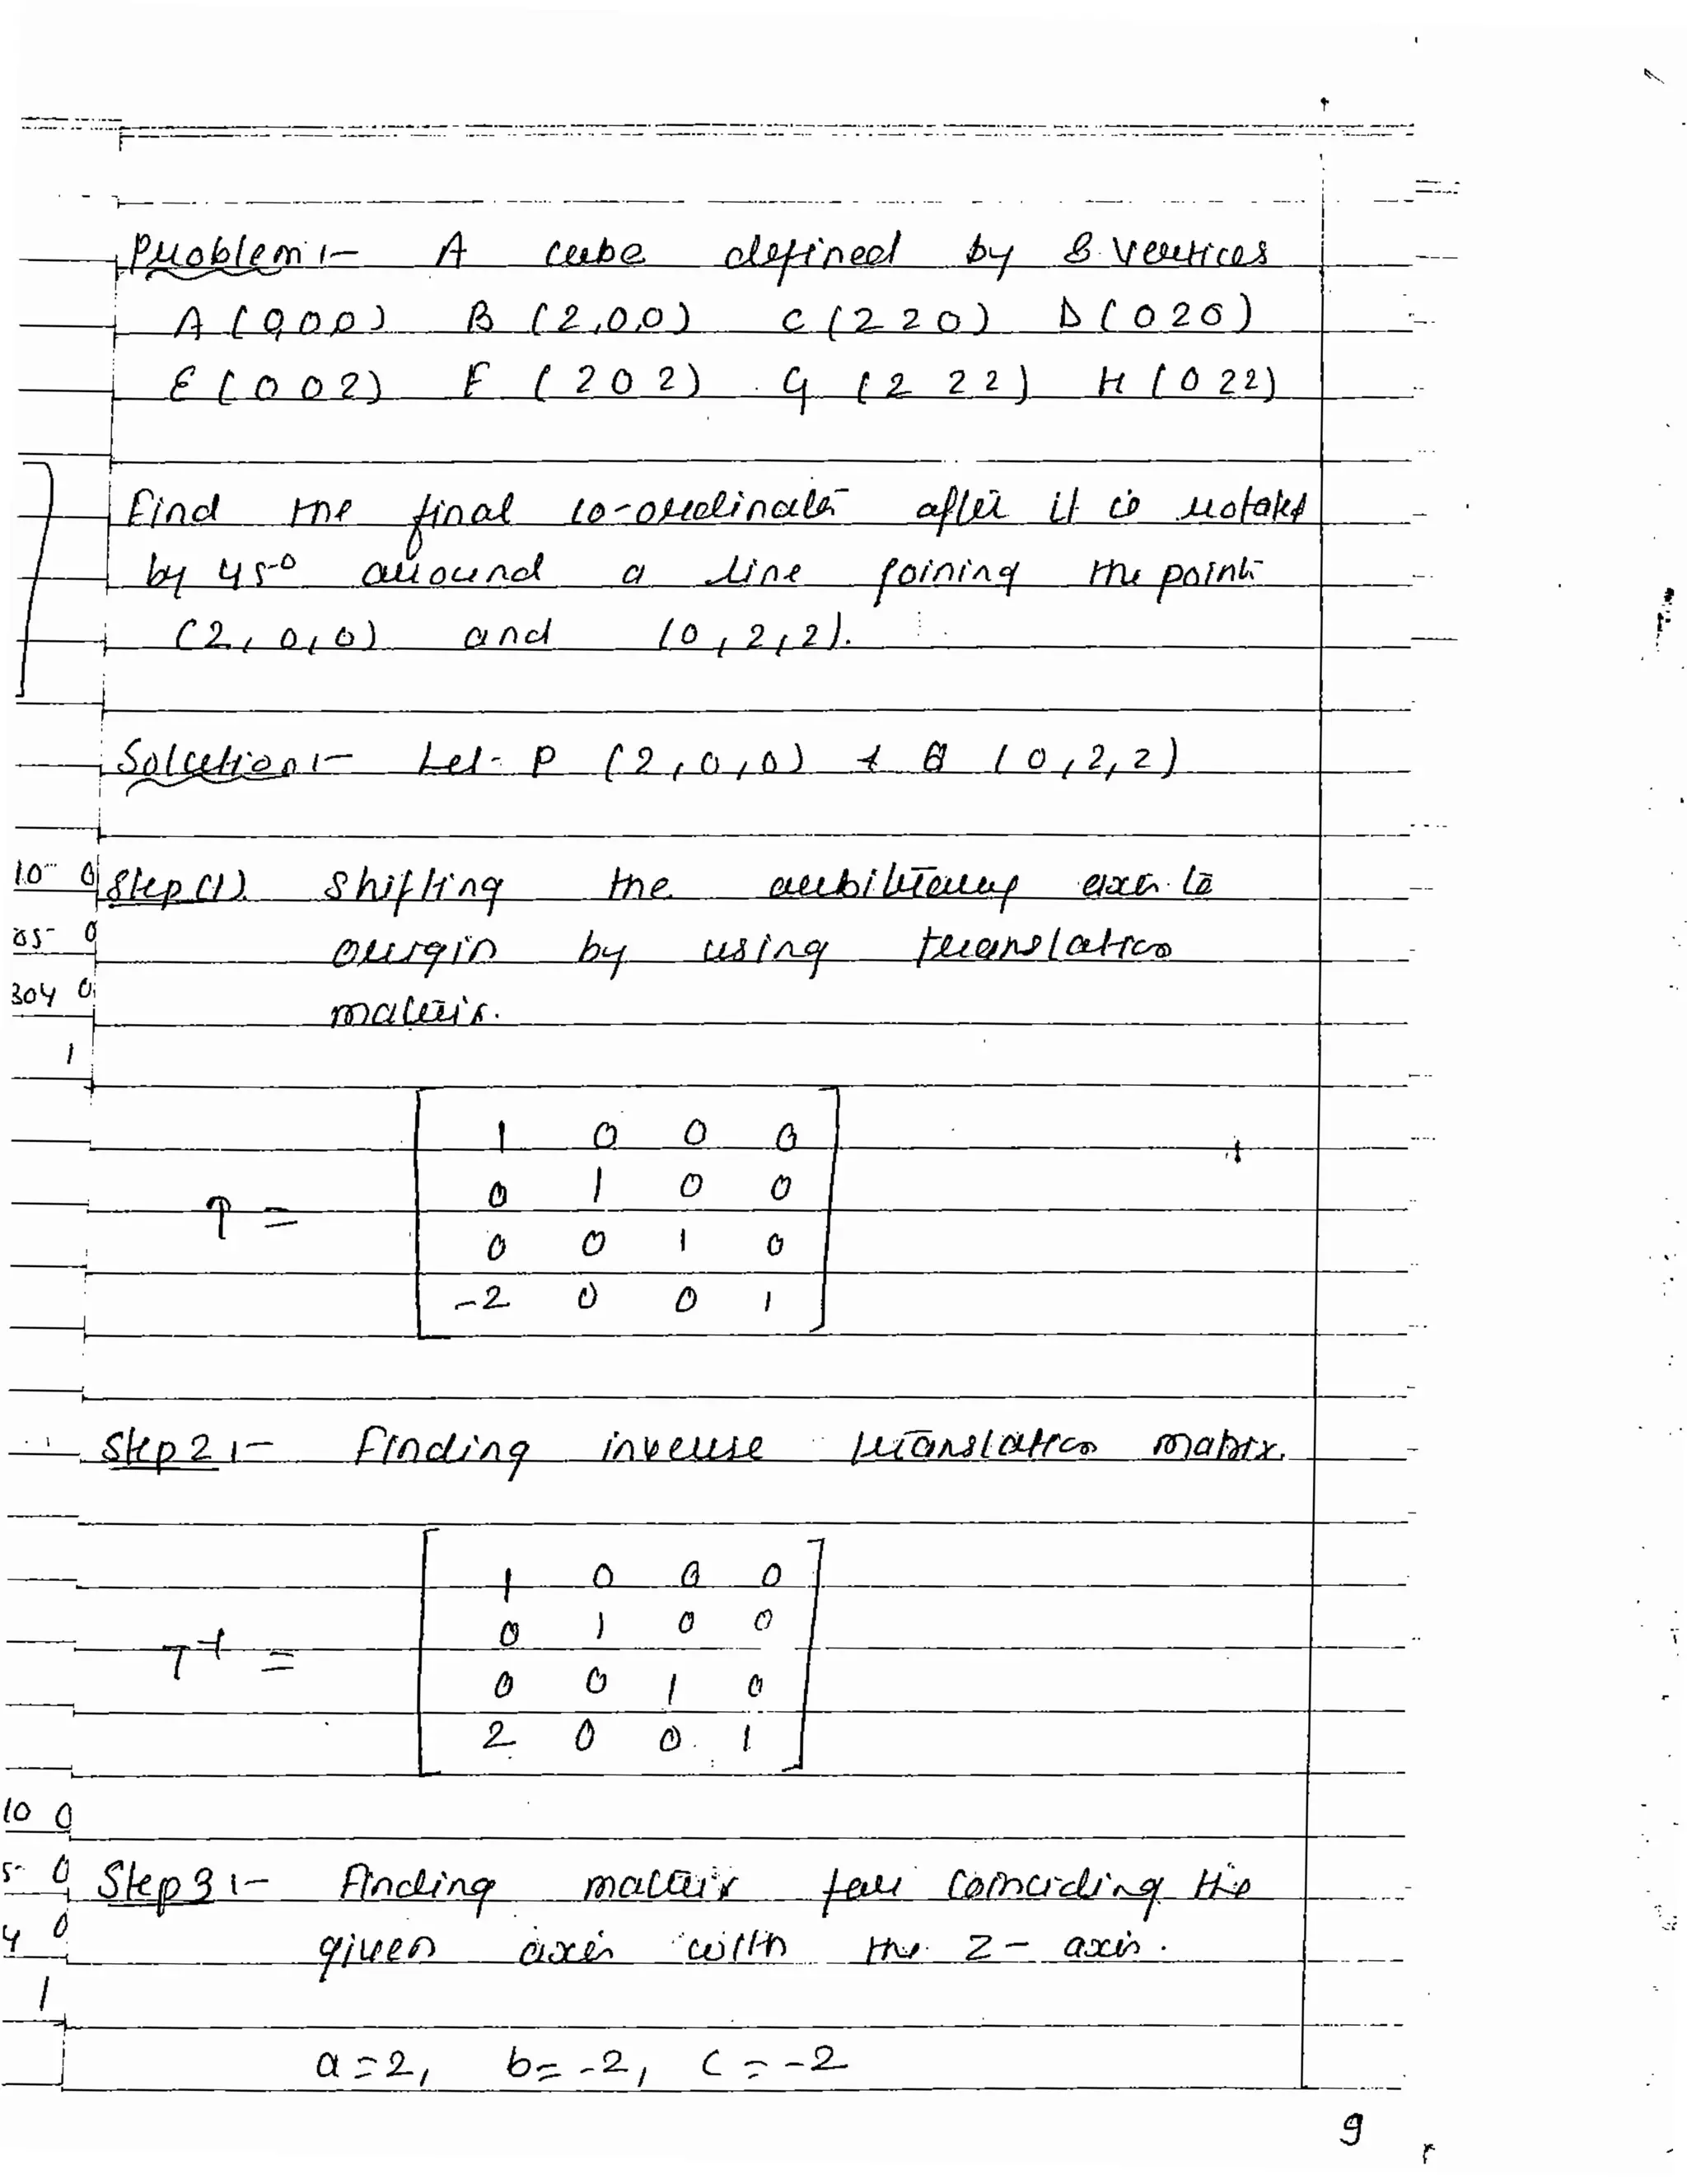 Problem:- A cube defined by 8 vertices
A (0,0,0) B (2,0,0) C (2 2 0) D (0 2 0)
E (0 0 2) F (2 0 2) G (2 2 2) H (0 2 2)
Find the final co-ordinates after it is rotated
by 45° around a line joining the points
(2,0,0) and (0,2,2).
Solution:- Let P (2,0,0) & Q (0,2,2)
10 0 Step (1) Shifting the arbitrary axis to
05 0 origin by using translation
304 0 matrix.
1
1 0 0 0
0 1 0 0
T =
0 0 1 0
-2 0 0 1
Step 2:- Finding inverse translation matrix.
1 0 0 0
0 1 0 0
T-1 =
0 0 1 0
2 0 0 1
10 0
5 0 Step 3:- Finding matrix for coinciding the
4 0 given axis with the z-axis.
1
a=2, b=-2, c=-2
9